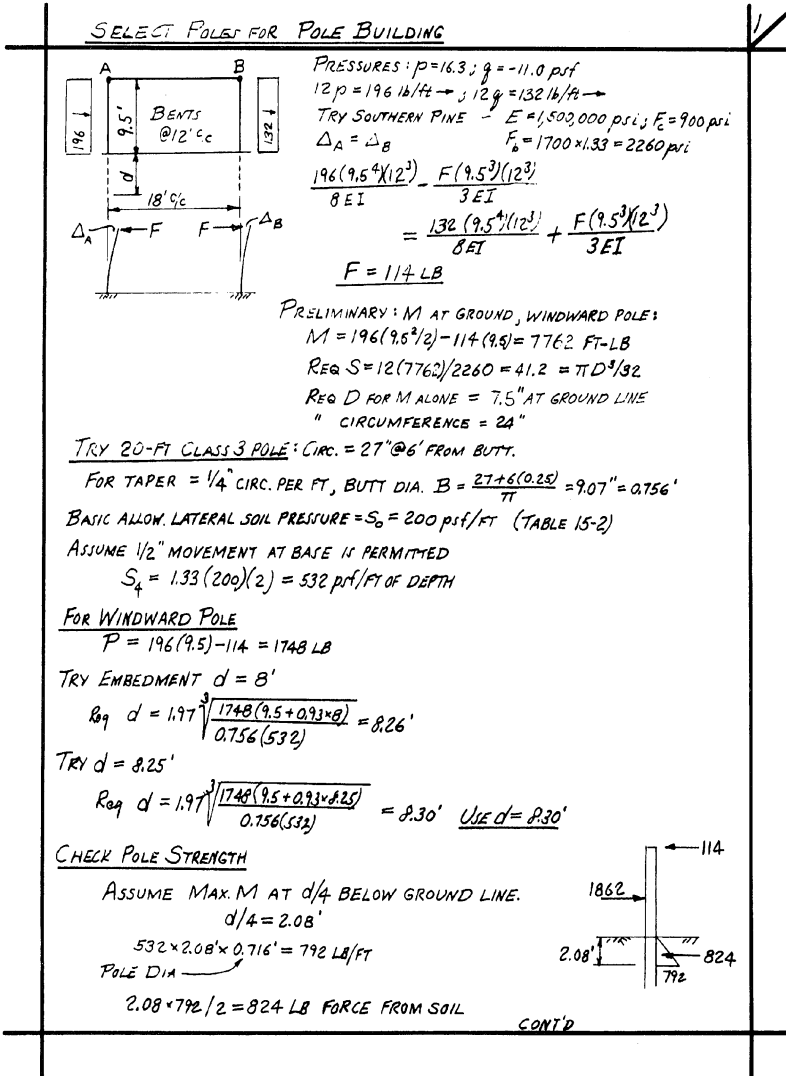 SELECT POLES FOR POLE BUILDING
1
A B
196
9.5'
BENTS
@12' c.c
132
d
18' c/c
ΔA F F ΔB
PRESSURES: p=16.3; q = -11.0 psf
12p = 196 lb/ft → ; 12q = 132 lb/ft →
TRY SOUTHERN PINE - E = 1,500,000 psi; Fc = 900 psi
ΔA = ΔB Fb = 1700 × 1.33 = 2260 psi
196(9.5⁴)(12³)/8EI - F(9.5³)(12³)/3EI
= 132(9.5⁴)(12³)/8EI + F(9.5³)(12³)/3EI
F = 114 LB
PRELIMINARY: M AT GROUND, WINDWARD POLE:
M = 196(9.5²/2) - 114(9.5) = 7762 FT-LB
REQ S = 12(7762)/2260 = 41.2 = πD³/32
REQ D FOR M ALONE = 7.5" AT GROUND LINE
" CIRCUMFERENCE = 24"
TRY 20-FT CLASS 3 POLE: CIRC. = 27"@6' FROM BUTT.
FOR TAPER = 1/4" CIRC. PER FT, BUTT DIA. B = (27+6(0.25))/π = 9.07" = 0.756'
BASIC ALLOW. LATERAL SOIL PRESSURE = S₀ = 200 psf/FT (TABLE 15-2)
ASSUME 1/2" MOVEMENT AT BASE IS PERMITTED
S₄ = 1.33(200)(2) = 532 psf/FT OF DEPTH
FOR WINDWARD POLE
P = 196(9.5) - 114 = 1748 LB
TRY EMBEDMENT d = 8'
Req d = 1.97 ∛(1748(9.5+0.93×8)/0.756(532)) = 8.26'
TRY d = 8.25'
Req d = 1.97 ∛(1748(9.5+0.93×8.25)/0.756(532)) = 8.30' USE d = 8.30'
CHECK POLE STRENGTH
ASSUME MAX. M AT d/4 BELOW GROUND LINE.
d/4 = 2.08'
532 × 2.08' × 0.716' = 792 LB/FT
POLE DIA
2.08 × 792/2 = 824 LB FORCE FROM SOIL
114
1862
2.08'
824
792
CONT'D